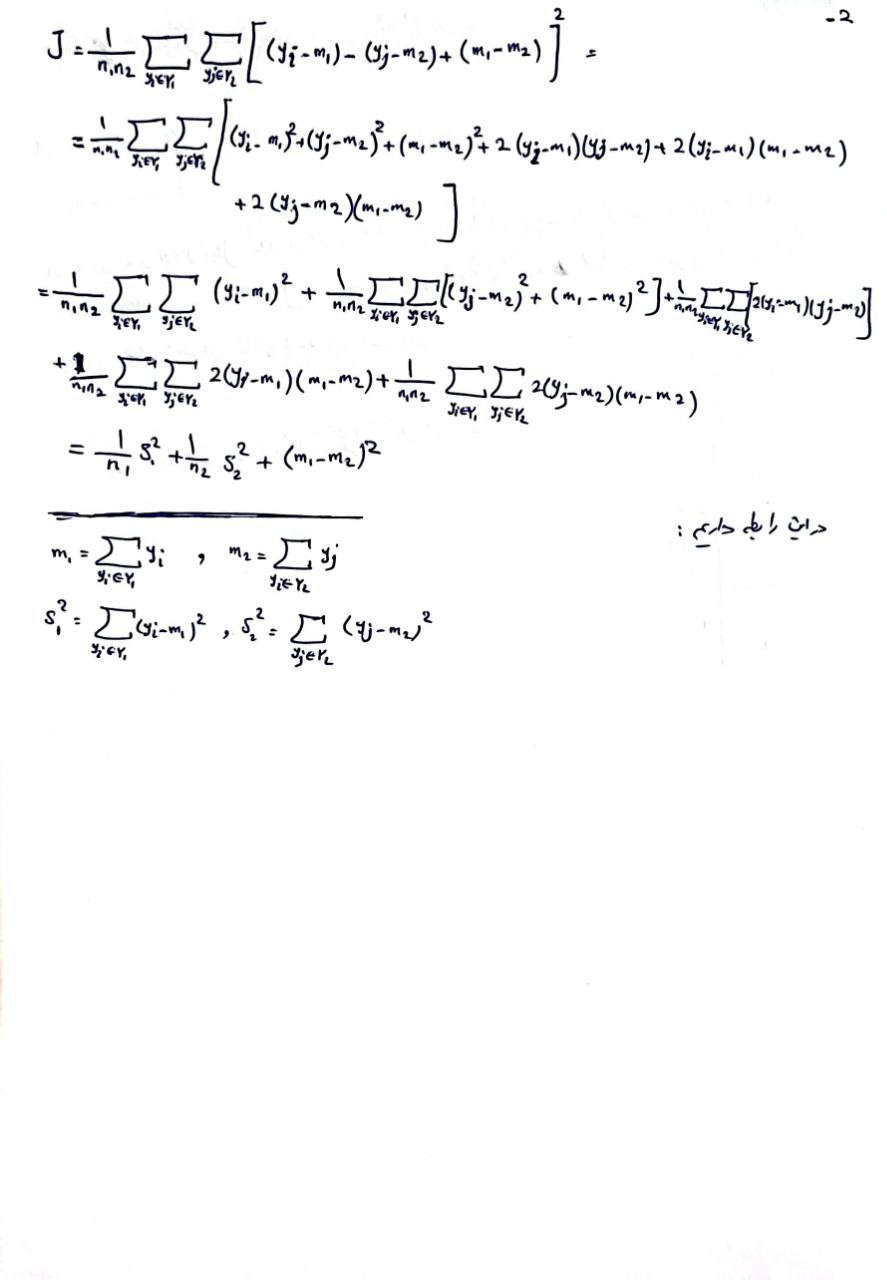 -2
J = \frac{1}{n_1 n_2} \sum_{y_i \in Y_1} \sum_{y_j \in Y_2} [ (y_i - m_1) - (y_j - m_2) + (m_1 - m_2) ]^2 =
= \frac{1}{n_1 n_1} \sum_{y_i \in Y_1} \sum_{y_j \in Y_2} [ (y_i - m_1)^2 + (y_j - m_2)^2 + (m_1 - m_2)^2 + 2 (y_j - m_1)(y_j - m_2) + 2 (y_i - m_1)(m_1 - m_2)
+ 2 (y_j - m_2)(m_1 - m_2) ]
= \frac{1}{n_1 n_2} \sum_{y_i \in Y_1} \sum_{y_j \in Y_2} (y_i - m_1)^2 + \frac{1}{n_1 n_2} \sum_{y_i \in Y_1} \sum_{y_j \in Y_2} [ (y_j - m_2)^2 + (m_1 - m_2)^2 ] + \frac{1}{n_1 n_2} \sum_{y_i \in Y_1} \sum_{y_j \in Y_2} [ 2(y_i - m_1)(y_j - m_2) ]
+ \frac{1}{n_1 n_2} \sum_{y_i \in Y_1} \sum_{y_j \in Y_2} 2(y_i - m_1)(m_1 - m_2) + \frac{1}{n_1 n_2} \sum_{y_i \in Y_1} \sum_{y_j \in Y_2} 2(y_j - m_2)(m_1 - m_2)
= \frac{1}{n_1} S_1^2 + \frac{1}{n_2} S_2^2 + (m_1 - m_2)^2
در این رابطه داریم :
m_1 = \sum_{y_i \in Y_1} y_i , m_2 = \sum_{y_i \in Y_2} y_j
S_1^2 = \sum_{y_i \in Y_1} (y_i - m_1)^2 , S_2^2 = \sum_{y_j \in Y_2} (y_j - m_2)^2